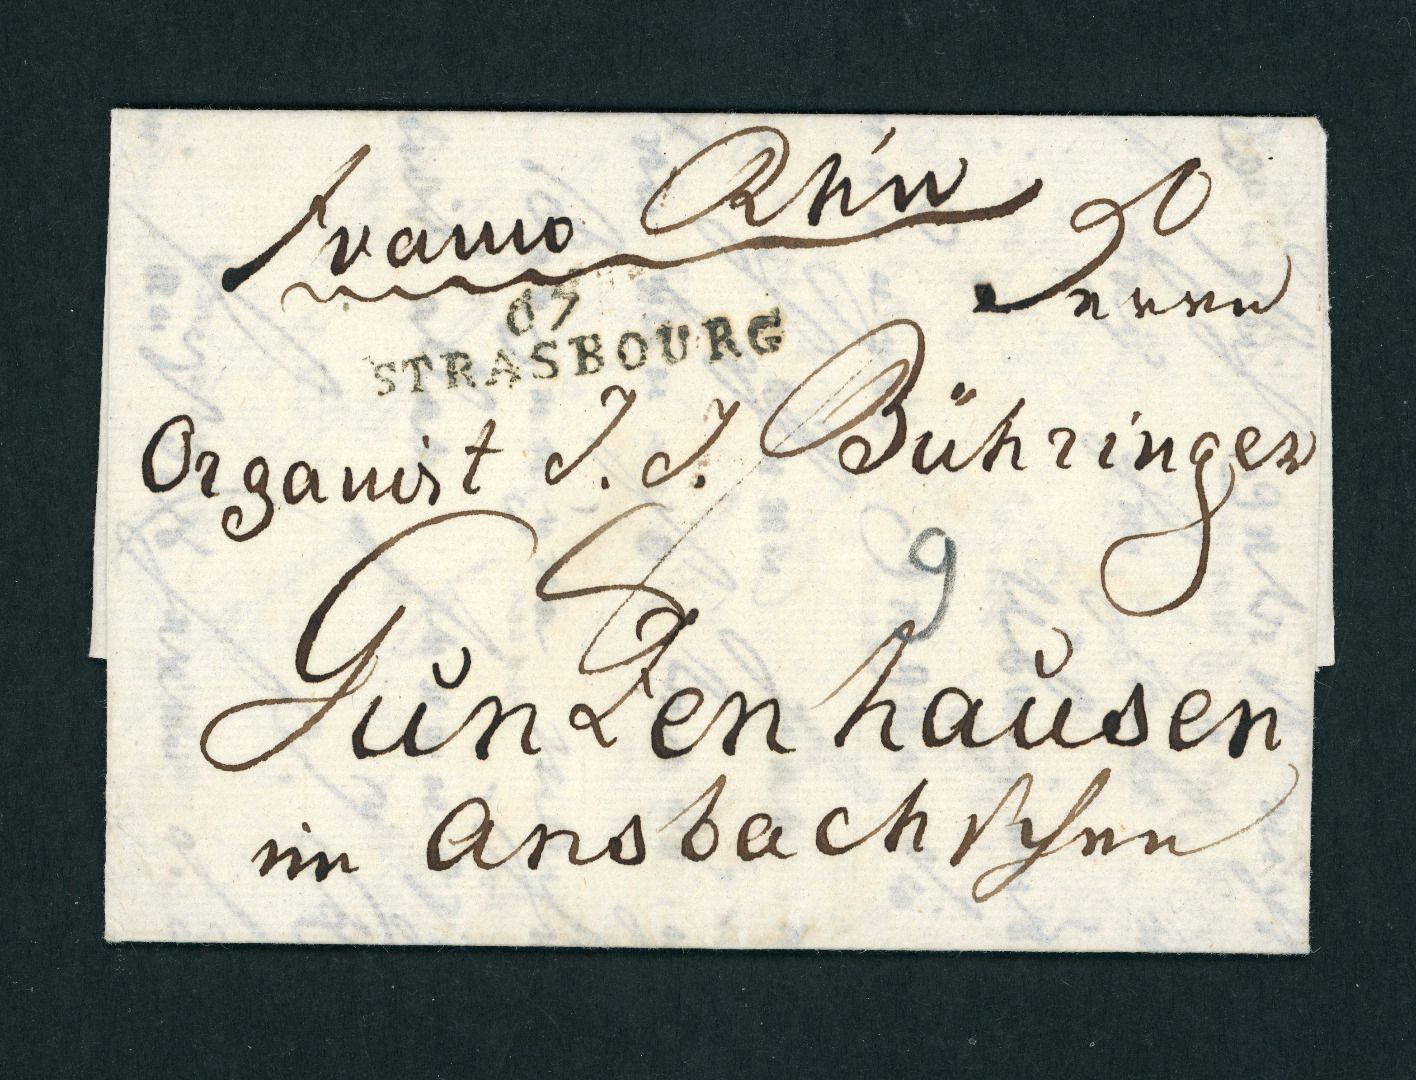 franco Rhin
Herrn
67
STRASBOURG
Organist J. J. Bühringer
9
Gunzenhausen
im Ansbachischen